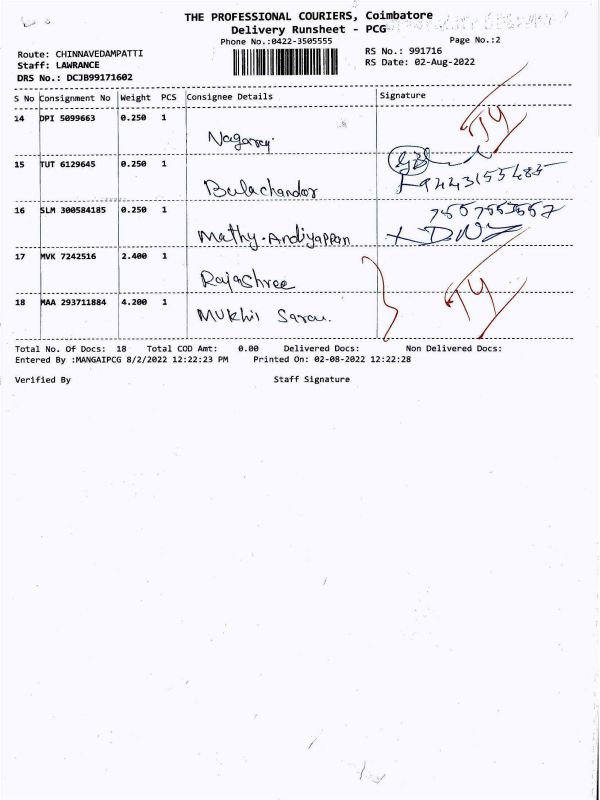 THE PROFESSIONAL COURIERS, Coimbatore
Delivery Runsheet - PCG
Phone No.:0422-3505555
Page No.:2
Route: CHINNAVEDAMPATTI
RS No.: 991716
Staff: LAWRANCE
RS Date: 02-Aug-2022
DRS No.: DCJB99171602
S No Consignment No Weight PCS Consignee Details Signature
14 DPI 5099663 0.250 1
Nagaraj TY
15 TUT 6129645 0.250 1
Balachander 9443155485
16 SLM 300584185 0.250 1 7557553557
Mathy.Andiyappan
17 MVK 7242516 2.400 1
Rajashree TY
18 MAA 293711884 4.200 1
Mukhil Saran.
Total No. Of Docs: 18 Total COD Amt: 0.00 Delivered Docs: Non Delivered Docs:
Entered By :MANGAIPCG 8/2/2022 12:22:23 PM Printed On: 02-08-2022 12:22:28
Verified By Staff Signature